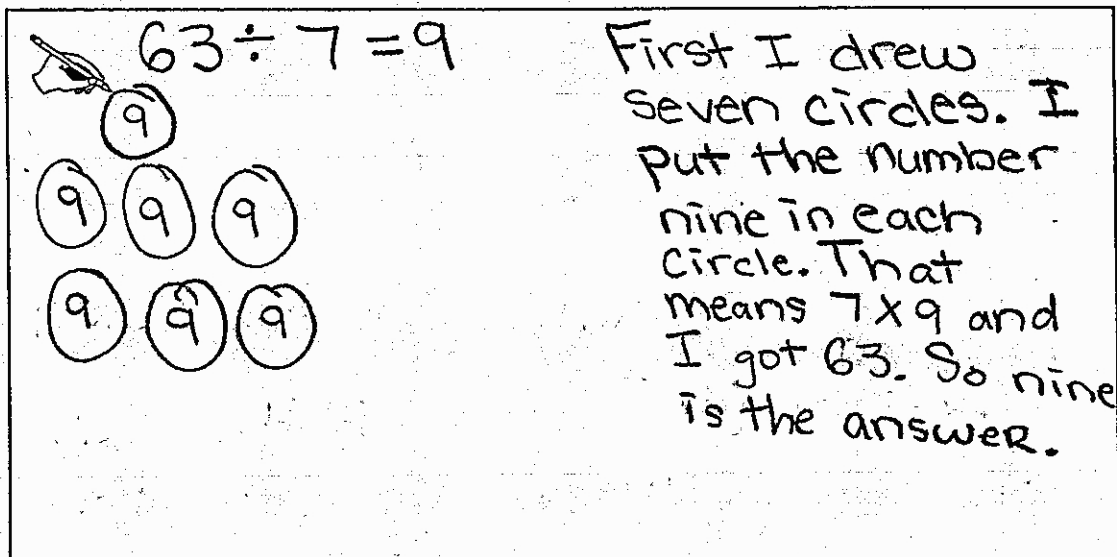 63 ÷ 7 = 9
9
9 9 9
9 9 9
First I drew
seven circles. I
put the number
nine in each
circle. That
means 7x9 and
I got 63. So nine
is the answer.